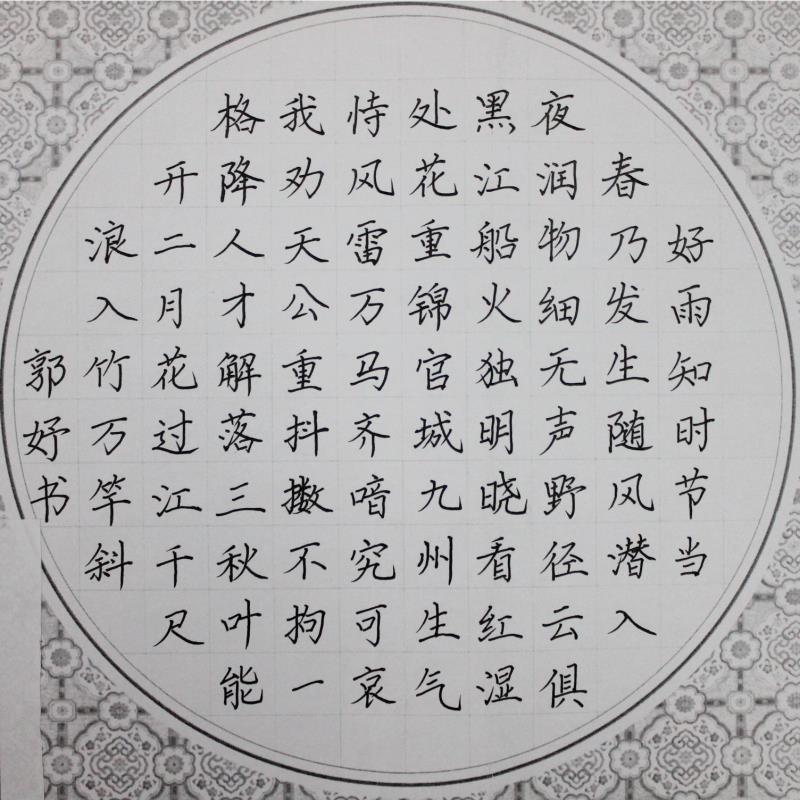 好雨知时节当
春乃发生随风潜入
夜润物细无声野径云俱
黑江船火独明晓看红湿
处花重锦官城九州生气
恃风雷万马齐喑究可哀
我劝天公重抖擞不拘一
格降人才解落三秋叶能
开二月花过江千尺
浪入竹万竿斜
郭妤书